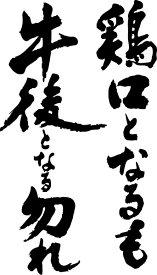 鶏口となるも
牛後となる勿れ